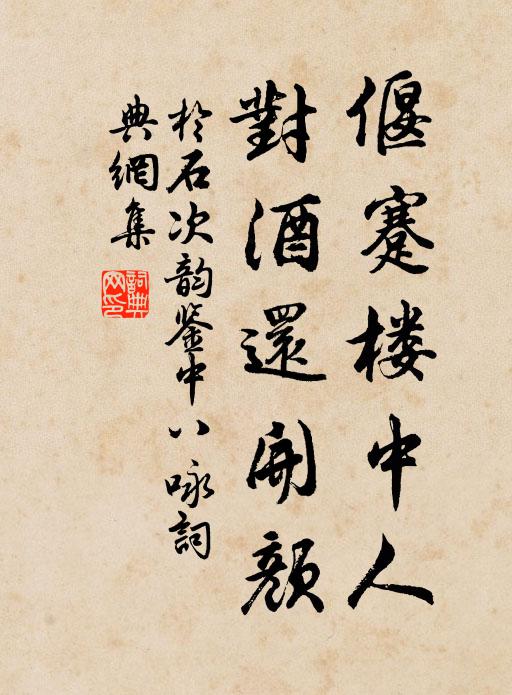 偃蹇楼中人
對酒還開顏
於石次韵鉴中八咏詞
典網集
詞典网印